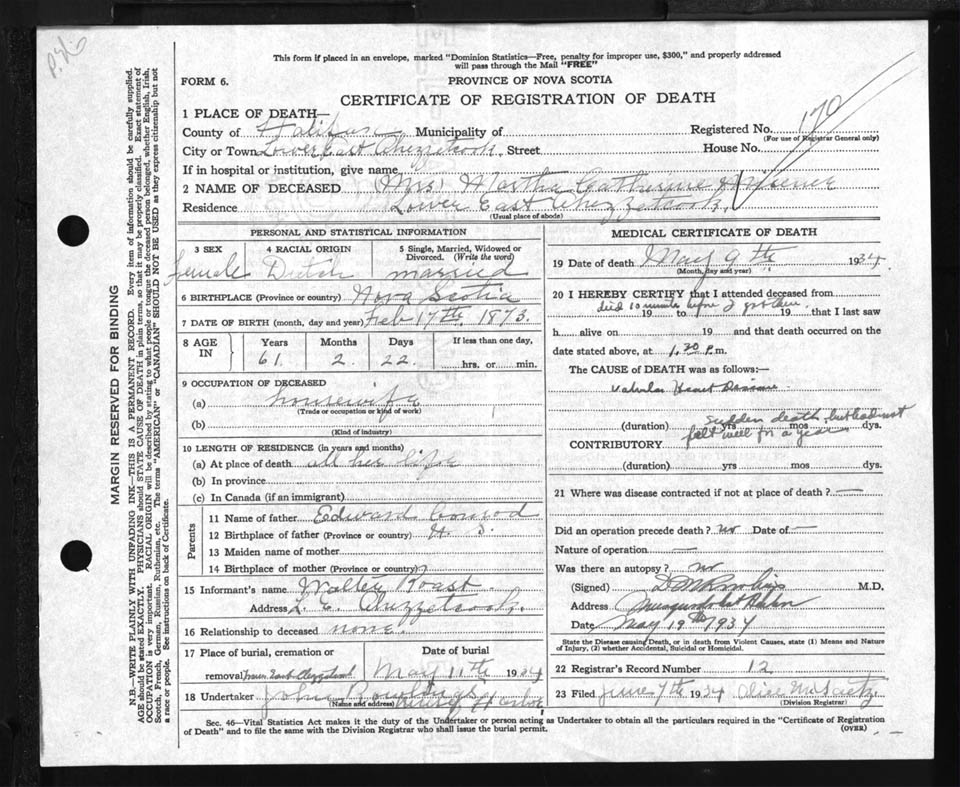 This form if placed in an envelope, marked "Dominion Statistics—Free, penalty for improper use, $300," and properly addressed
will pass through the Mail "FREE"
FORM 6. PROVINCE OF NOVA SCOTIA
CERTIFICATE OF REGISTRATION OF DEATH
1 PLACE OF DEATH—
County of Halifax Municipality of Registered No. 170
(For use of Registrar General only)
City or Town Lower East Chezzetcook Street House No.
If in hospital or institution, give name
2 NAME OF DECEASED (Mrs) Martha Catherine
Residence Lower East Chezzetcook
(Usual place of abode)
PERSONAL AND STATISTICAL INFORMATION
3 SEX 4 RACIAL ORIGIN 5 Single, Married, Widowed or
Divorced. (Write the word)
female Dutch married
6 BIRTHPLACE (Province or country) Nova Scotia
7 DATE OF BIRTH (month, day and year) Feb 17th 1873.
8 AGE IN Years Months Days If less than one day,
61. 2. 22. hrs. or min.
9 OCCUPATION OF DECEASED
(a) housewife
(Trade or occupation or kind of work)
(b)
(Kind of industry)
10 LENGTH OF RESIDENCE (in years and months)
(a) At place of death all her life
(b) In province
(c) In Canada (if an immigrant)
Parents
11 Name of father Edward Conrod
12 Birthplace of father (Province or country) N. S.
13 Maiden name of mother
14 Birthplace of mother (Province or country)
15 Informant's name Walter Roast
Address L. E. Chezzetcook.
16 Relationship to deceased none.
17 Place of burial, cremation or removal Date of burial
Lower East Chezzetcook May 11th 1934
18 Undertaker John
(Name and address) Harbor
MEDICAL CERTIFICATE OF DEATH
19 Date of death May 9th 1934.
(Month, day and year)
20 I HEREBY CERTIFY that I attended deceased from
died 10 minutes before I got there
19 to 19 that I last saw
h alive on 19 and that death occurred on
date stated above, at 1.30 P.m.
The CAUSE of DEATH was as follows:—
Valvular Heart Disease
(duration) yrs mos dys.
sudden death, but had not
felt well for a year
CONTRIBUTORY
(duration) yrs mos dys.
21 Where was disease contracted if not at place of death? —
Did an operation precede death? no Date of —
Nature of operation —
Was there an autopsy? no
(Signed) M.D.
Address Musquodoboit Harbor
Date May 19th 1934
State the Disease causing Death, or in death from Violent Causes, state (1) Means and Nature
of Injury, (2) whether Accidental, Suicidal or Homicidal.
22 Registrar's Record Number 12
23 Filed June 7th 1934 Alice
(Division Registrar)
Sec. 46—Vital Statistics Act makes it the duty of the Undertaker or person acting as Undertaker to obtain all the particulars required in the "Certificate of Registration
of Death" and to file the same with the Division Registrar who shall issue the burial permit. (OVER)
MARGIN RESERVED FOR BINDING
N.B.—WRITE PLAINLY WITH UNFADING INK—THIS IS A PERMANENT RECORD. Every item of information should be carefully supplied.
AGE should be stated EXACTLY. PHYSICIANS should STATE CAUSE OF DEATH in plain terms, so that it may be properly classified. Exact statement of
OCCUPATION is very important. RACIAL ORIGIN will be described by stating to what people or tongue the deceased person belonged, whether English, Irish,
Scotch, French, German, Russian, Ruthenian, etc. The terms "AMERICAN" or "CANADIAN" SHOULD NOT BE USED as they express citizenship but not
a race or people. See instructions on back of Certificate.